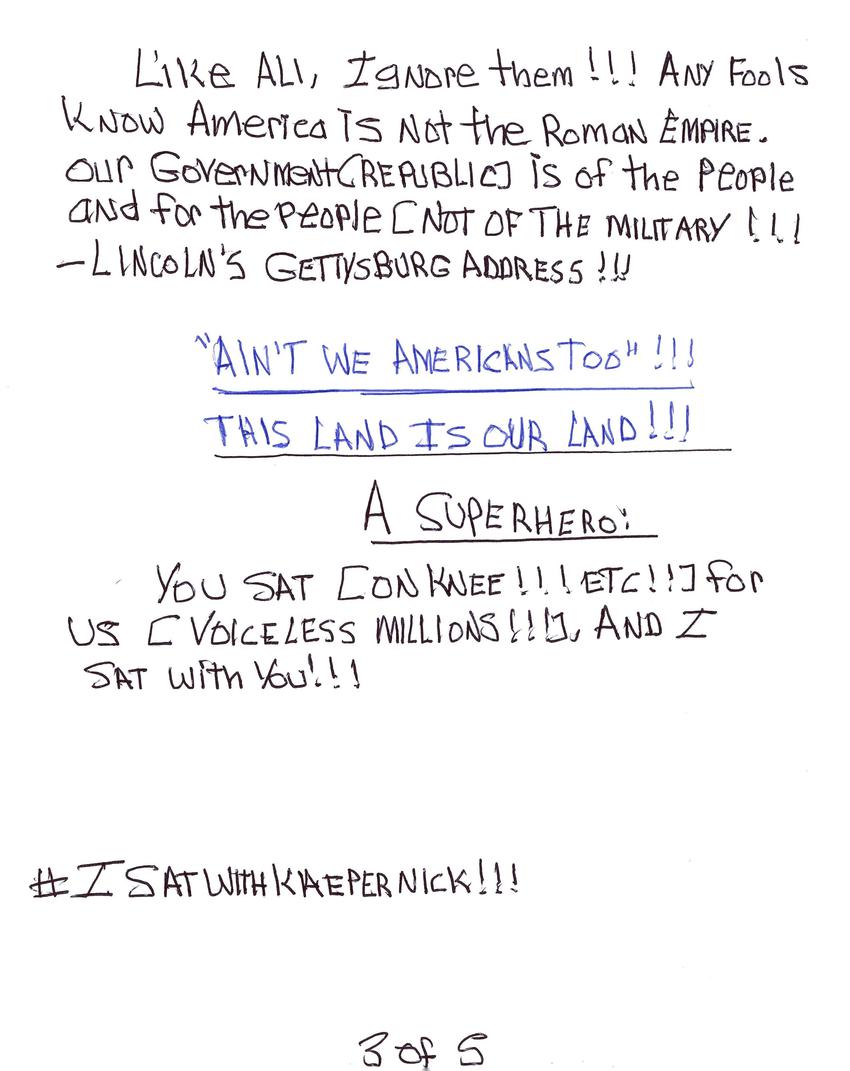 Like ALI, Ignore them !!! ANY Fools
KNOW America Is Not the Roman EMPIRE.
OUR GOVERNMENT(REPUBLIC] is of the People
and for the People [NOT OF THE MILITARY !!!
-LINCOLN'S GETTYSBURG ADDRESS !!!
"AIN'T WE AMERICANS TOO" !!!
THIS LAND IS OUR LAND!!!
A SUPERHERO:
YOU SAT [ON KNEE!!! ETC!!] for
US [VOICELESS MILLIONS!!!], AND I
SAT with You!!!
#I SAT WITH KAEPERNICK!!!
3 of 5